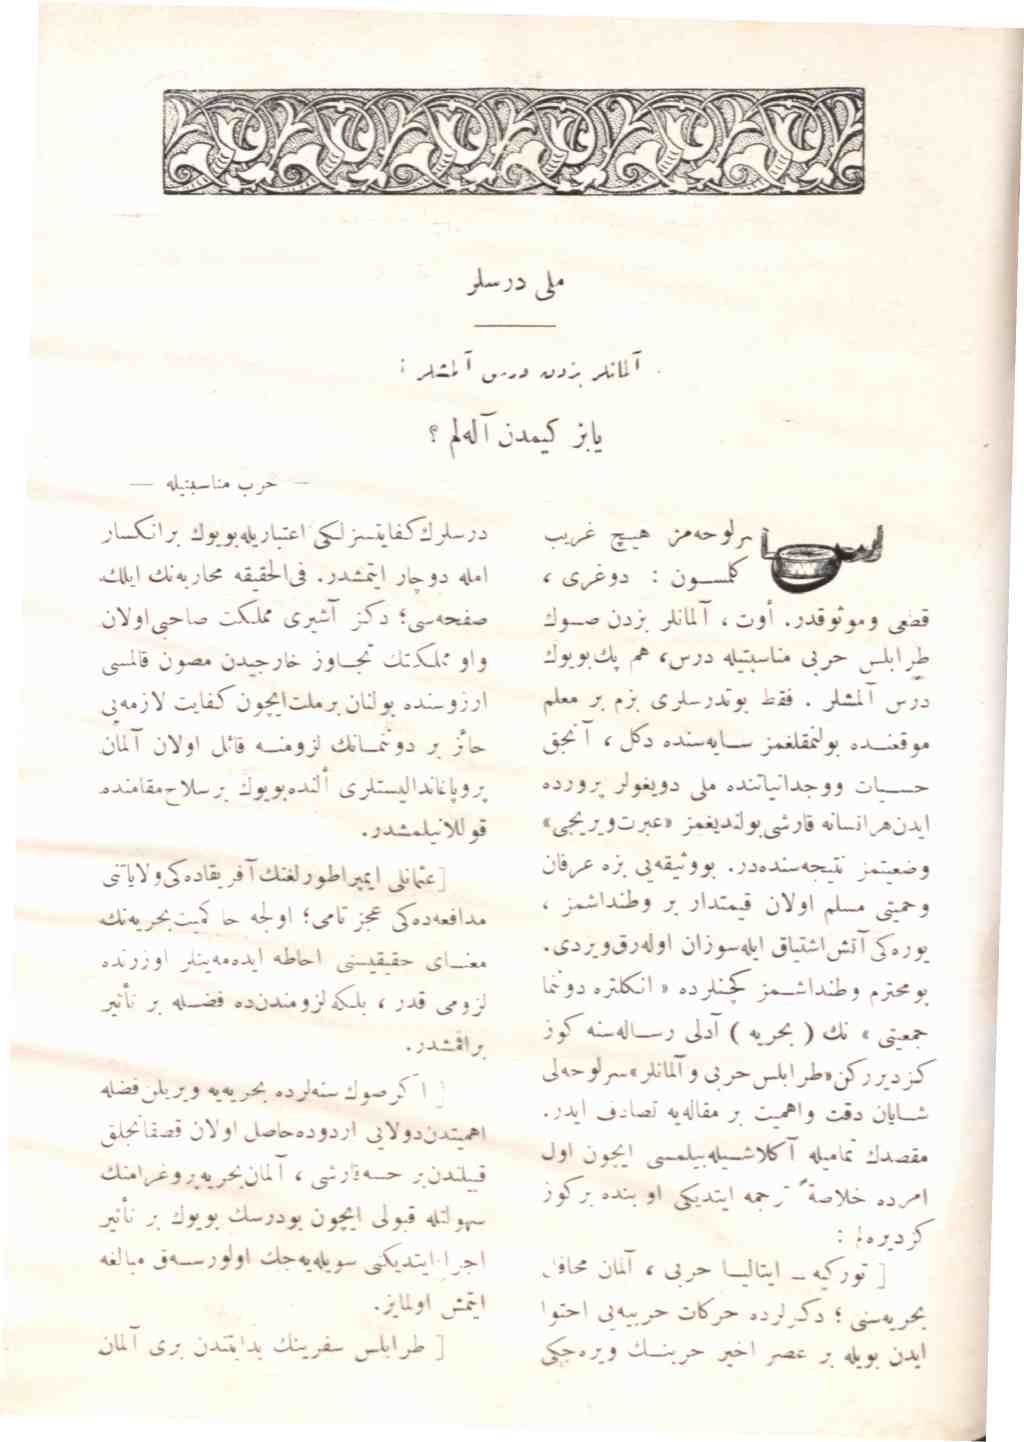 ملی درسلر
آلمانلر بزدن درس آلمشلر :
یا بز کیمدن آله‌لم ؟
— حرب مناسبتیله —
سرلوحه‌مز هیچ غریب
کلمســون : دوغری ،
قطعی وموثوقدر. أوت ، آلمانلر بزدن صــوك
طرابلس حربی مناسبتیله درس، هم پك بویوك
درس آلمشلر . فقط بوتدرسلری بزم بر معلم
موقعنــده بولنمقلغمز ســایه‌سنده دکل ، آنجق
حســیات ووجدانیاتنده ملی دویغولر پرورده
ایدن هر انسانه قارشی بولندیغمز «عبرت ویریجی»
وضعیتمز نتیجه‌سنده‌در. بو وثیقه‌یی بزه عرفان
وحمیتی مسلم اولان قیمتدار بر وطنداشمز ،
یوره‌کی آتش اشتیاق ایله سوزان اوله‌رق ویردی.
بو محترم وطنداشــمز کچنلرده « انکلتره دوننما
جمعیتی » نك ( بحریه ) آدلی رســاله‌سنه کوز
کزدیررکن «طرابلس حربی و آلمانلر» سرلوحه‌لی
شــایان دقت واهمیت بر مقاله‌یه تصادف ایدر.
مقصدك تمامیله آکلاشــیله‌بیلمســی ایچون اول
امرده خلاصةً ترجمه ایتدیکی او بنده بر کوز
کزدیره‌لم :
[ تورکیه ــ ایتالیــا حربی ، آلمان محافل
بحریه‌سنی ؛ دکزلرده حرکات حربیه‌یی احتوا
ایدن بویله بر عصر اخیر حربنــك ویره‌جکی
درسلرك کفایتسزلکی اعتباریله بویوك بر انکسار
امله دوچار ایتمشدر. فی‌الحقیقه محاربه‌نك ایلك
صفحه‌سی؛ دکز آشیری مملکت صاحبی اولان
واو مملکتك تجــاوز خارجیدن مصون قالمسی
آرزوسنده بولنان بر ملت ایچون کفایت لازمه‌یی
حائز بر دونمــانك لزومنــه قائل اولان آلمان
پروپاغاندالیستلری ألنده بویوك بر سلاح مقامنده
قوللانیلمشدر.
[ عثمانلی ایمپراطورلغنك آفریقاده‌کی ولایاتنی
مدافعه‌ده‌کی عجز تامی؛ اولجه حاکمیت بحریه‌نك
معنــای حقیقیسنی احاطه ایده‌مه‌ینلر اوزرنده
لزومی قدر ، بلکه لزومندن‌ده فضــله بر تأثیر
براقمشدر.
[ اکر صوك سنه‌لرده بحریه‌یه ویریلن فضله
اهمیتدن دولایی اردوده حاصل اولان قصقانجلق
قبیلندن بر حسه قارشی ، آلمان بحریه پروغرامنك
سهولتله قبولی ایچون بودرسك بویوك بر تأثیر
اجرا ایتدیکنی سویله‌یه‌جك اولورســه‌ق مبالغه
ایتمش اولمایز.
[ طرابلس سفرینك بدایتندن بری آلمان